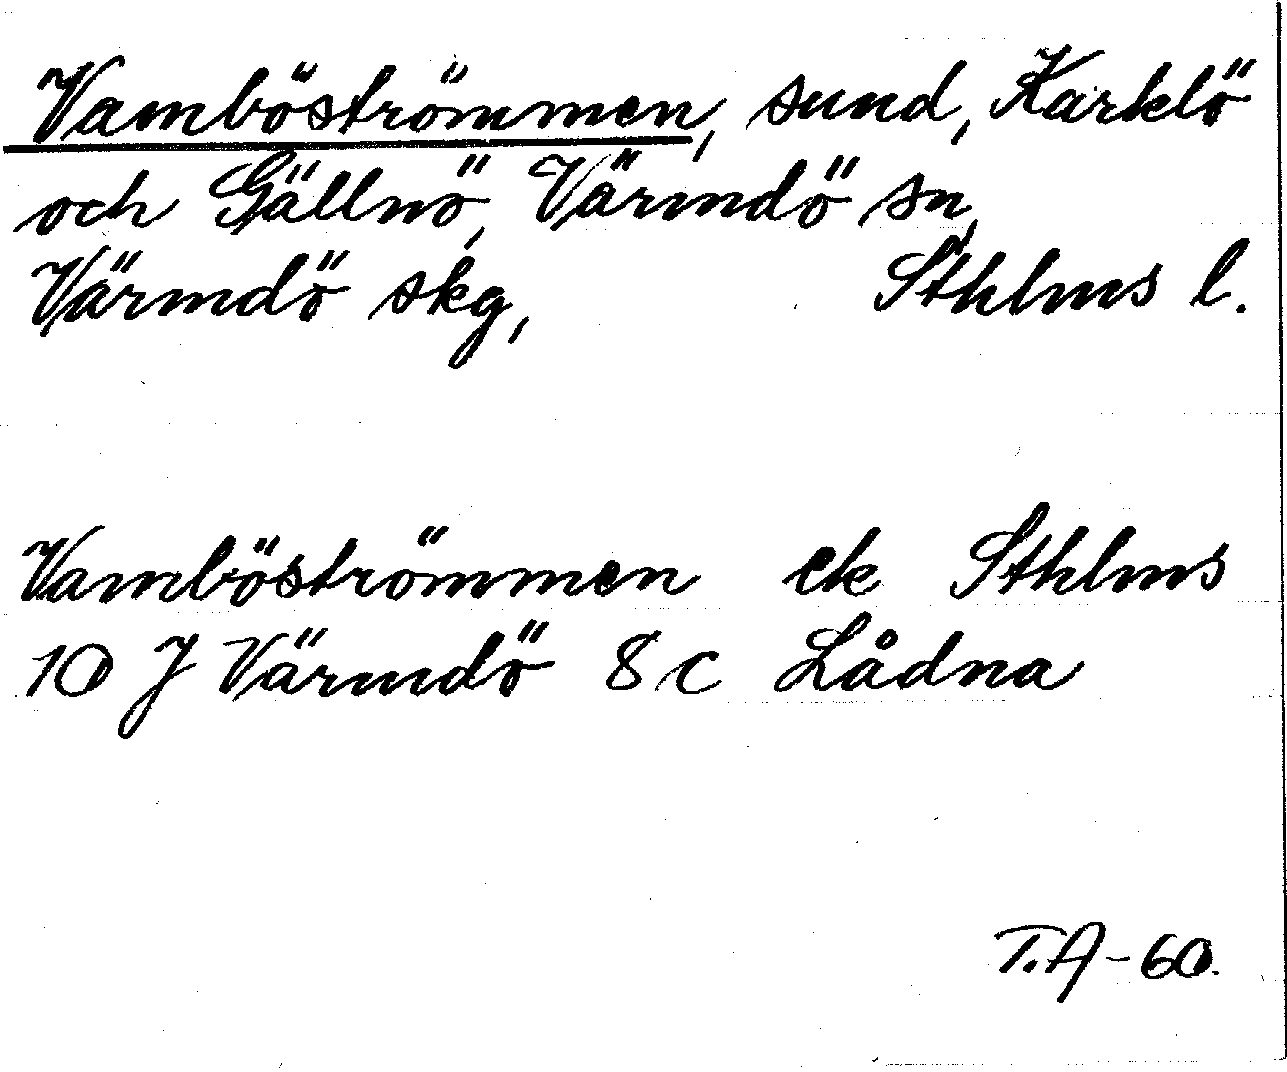 Vamböströmmen, sund, Karklö
och Gällnö, Värmdö sn,
Värmdö skg, Sthlms l.
Vamböströmmen ek Sthlms
10 J Värmdö 8 c Lådna
T.A-60.